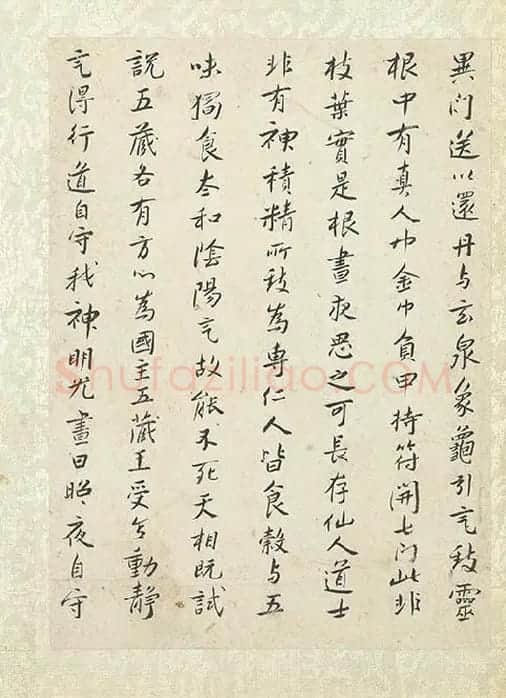 異门送以還丹与玄泉象龜引气致靈
根中有真人巾金巾負甲持符開七门此非
枝葉實是根晝夜思之可長存仙人道士
非有神積精所致為專仁人皆食穀与五
味獨食太和陰陽气故能不死天相既試
說五藏各有方心為國主五藏王受意動靜
气得行道自守我神明光晝日昭夜自守
Shufaziliao.COM